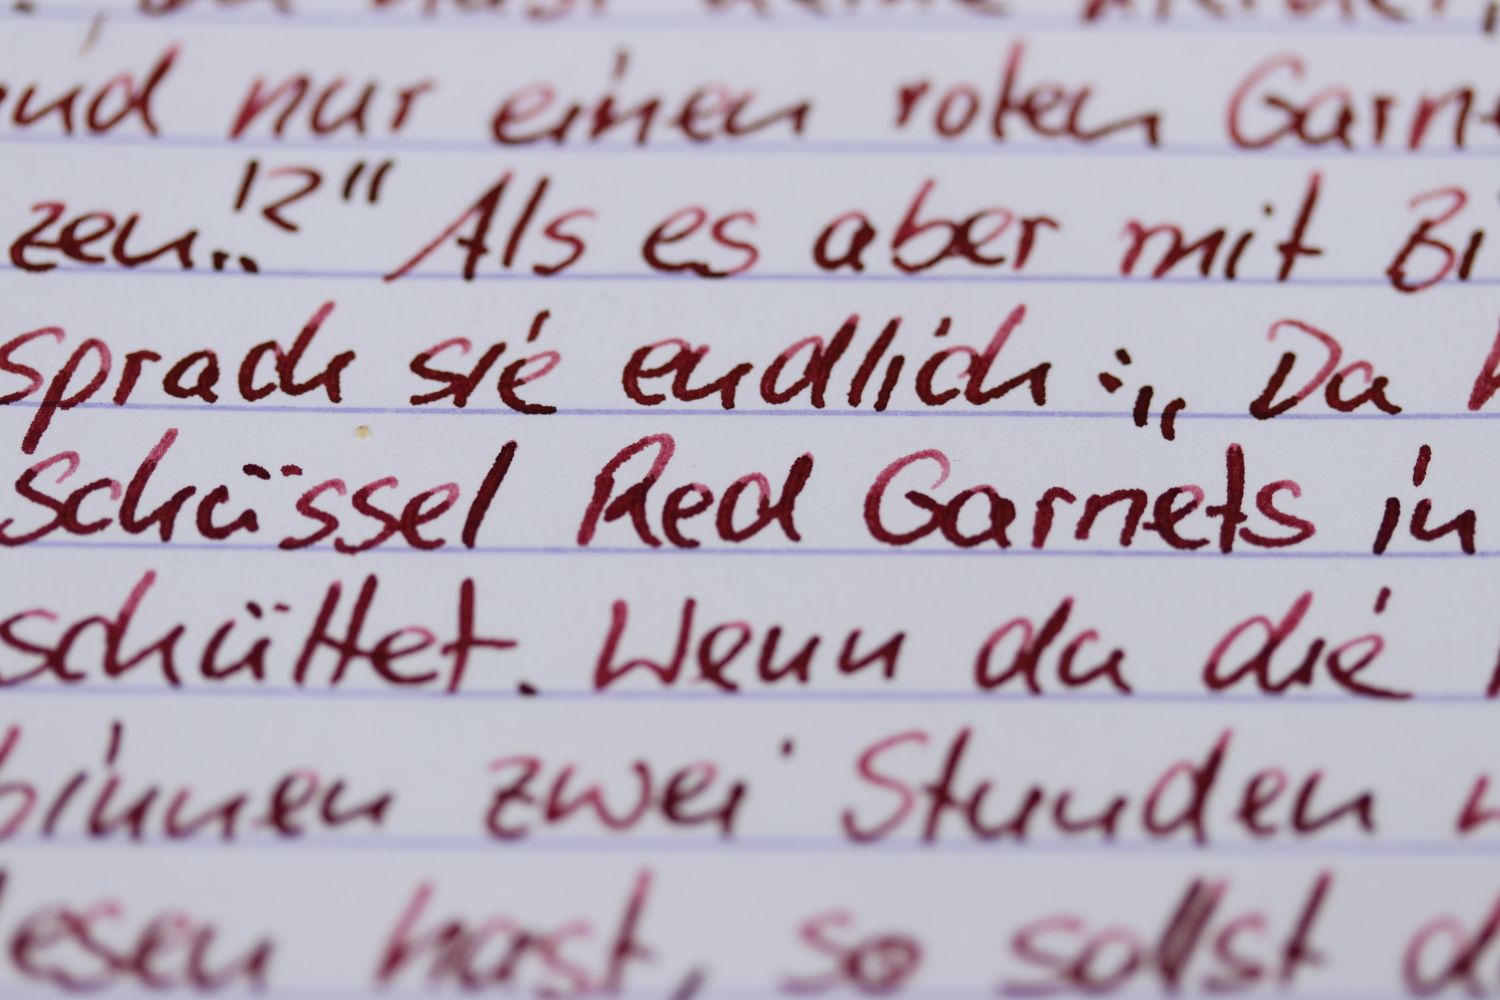 du hast deine Kleider,
und nur einen roten Garne
zen..!?“ Als es aber mit Bi
sprach sie endlich:„ Da h
schüssel Red Garnets in
schüttet. Wenn du die
binnen zwei Stunden
lesen hast, so sollst d